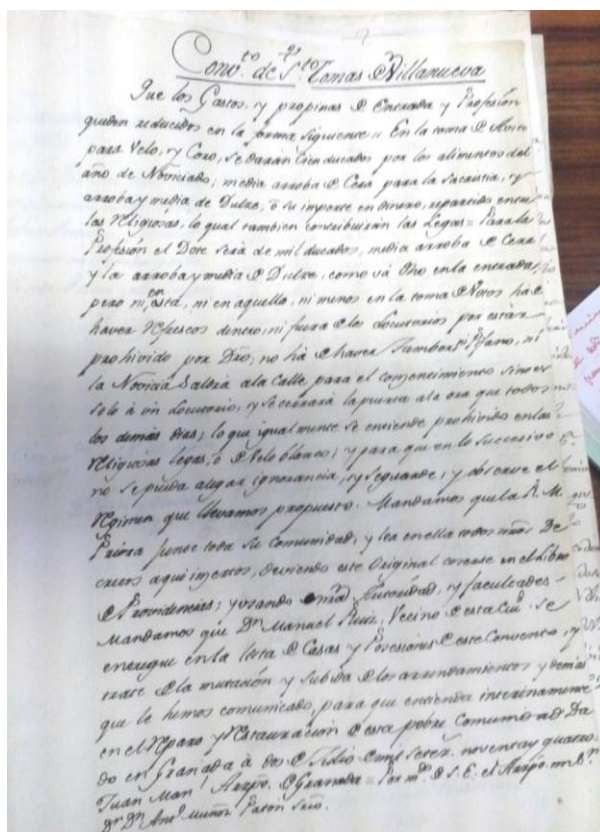 Conv.to de S.to Tomas de Villanueva
Que los Gastos, y propinas de Entrada y Profesion
queden reducidos en la forma siguiente = En la toma de Avito
para Velo, y Coro, se darán Cien ducados por los alimentos del
año de Noviciado; media arroba de Cera para la Sacristia, y
arroba y media de Dulze, ó su importe en dinero, repartido entre
las Religiosas, lo qual tambien contribuirán las Legas = Para la
Profesión el Dote será de mil ducados, media arroba de Cera
y la arroba y media de Dulze, como vá dho en la entrada,
pero ni en esta, ni en aquella, ni menos en la toma de Votos há de
haver Refrescos dentro, ni fuera de los Locutorios por estar
prohivido por Dro; no há de haver Tambor, ni Pifano, ni
la Novicia Saldrá ala Calle para el consentimiento sino es
solo á un Locutorio, y se cerrará la puerta ala ora que todos
los demás dias; lo que igualmente se entiende prohivido en las
Religiosas legas, ó de Velo blanco; y para que en lo succesivo
no se pueda alegar ignorancia, y se guarde, y observe el
Regimen que llevamos propuesto. Mandamos que la R. M.
Priora junte toda su Comunidad, y lea en ella todos nros De
cretos aqui insertos, deviendo este Original coserse en el Libro
de Providencias; y usando de nra Autoridad, y facultades
Mandamos que Dn Manuel Ruiz, Vecino de esta Ciud. se
entregue en la lista de Casas y Posesiones de este Convento, y
trate de la mutación y subida de los arrendamientos y demás
que le hemos comunicado, para que entienda interinamente
en el Reparo y Restauración de esta pobre Comunidad Da
do en Granada á dos de Julio de mil setez. noventa y quatro =
Juan Man.l Arzpo. de Granada = Por m.do de S. E. el Arzpo. mi S.r
Dr Dn Ant.o Muñoz Patón Srio.